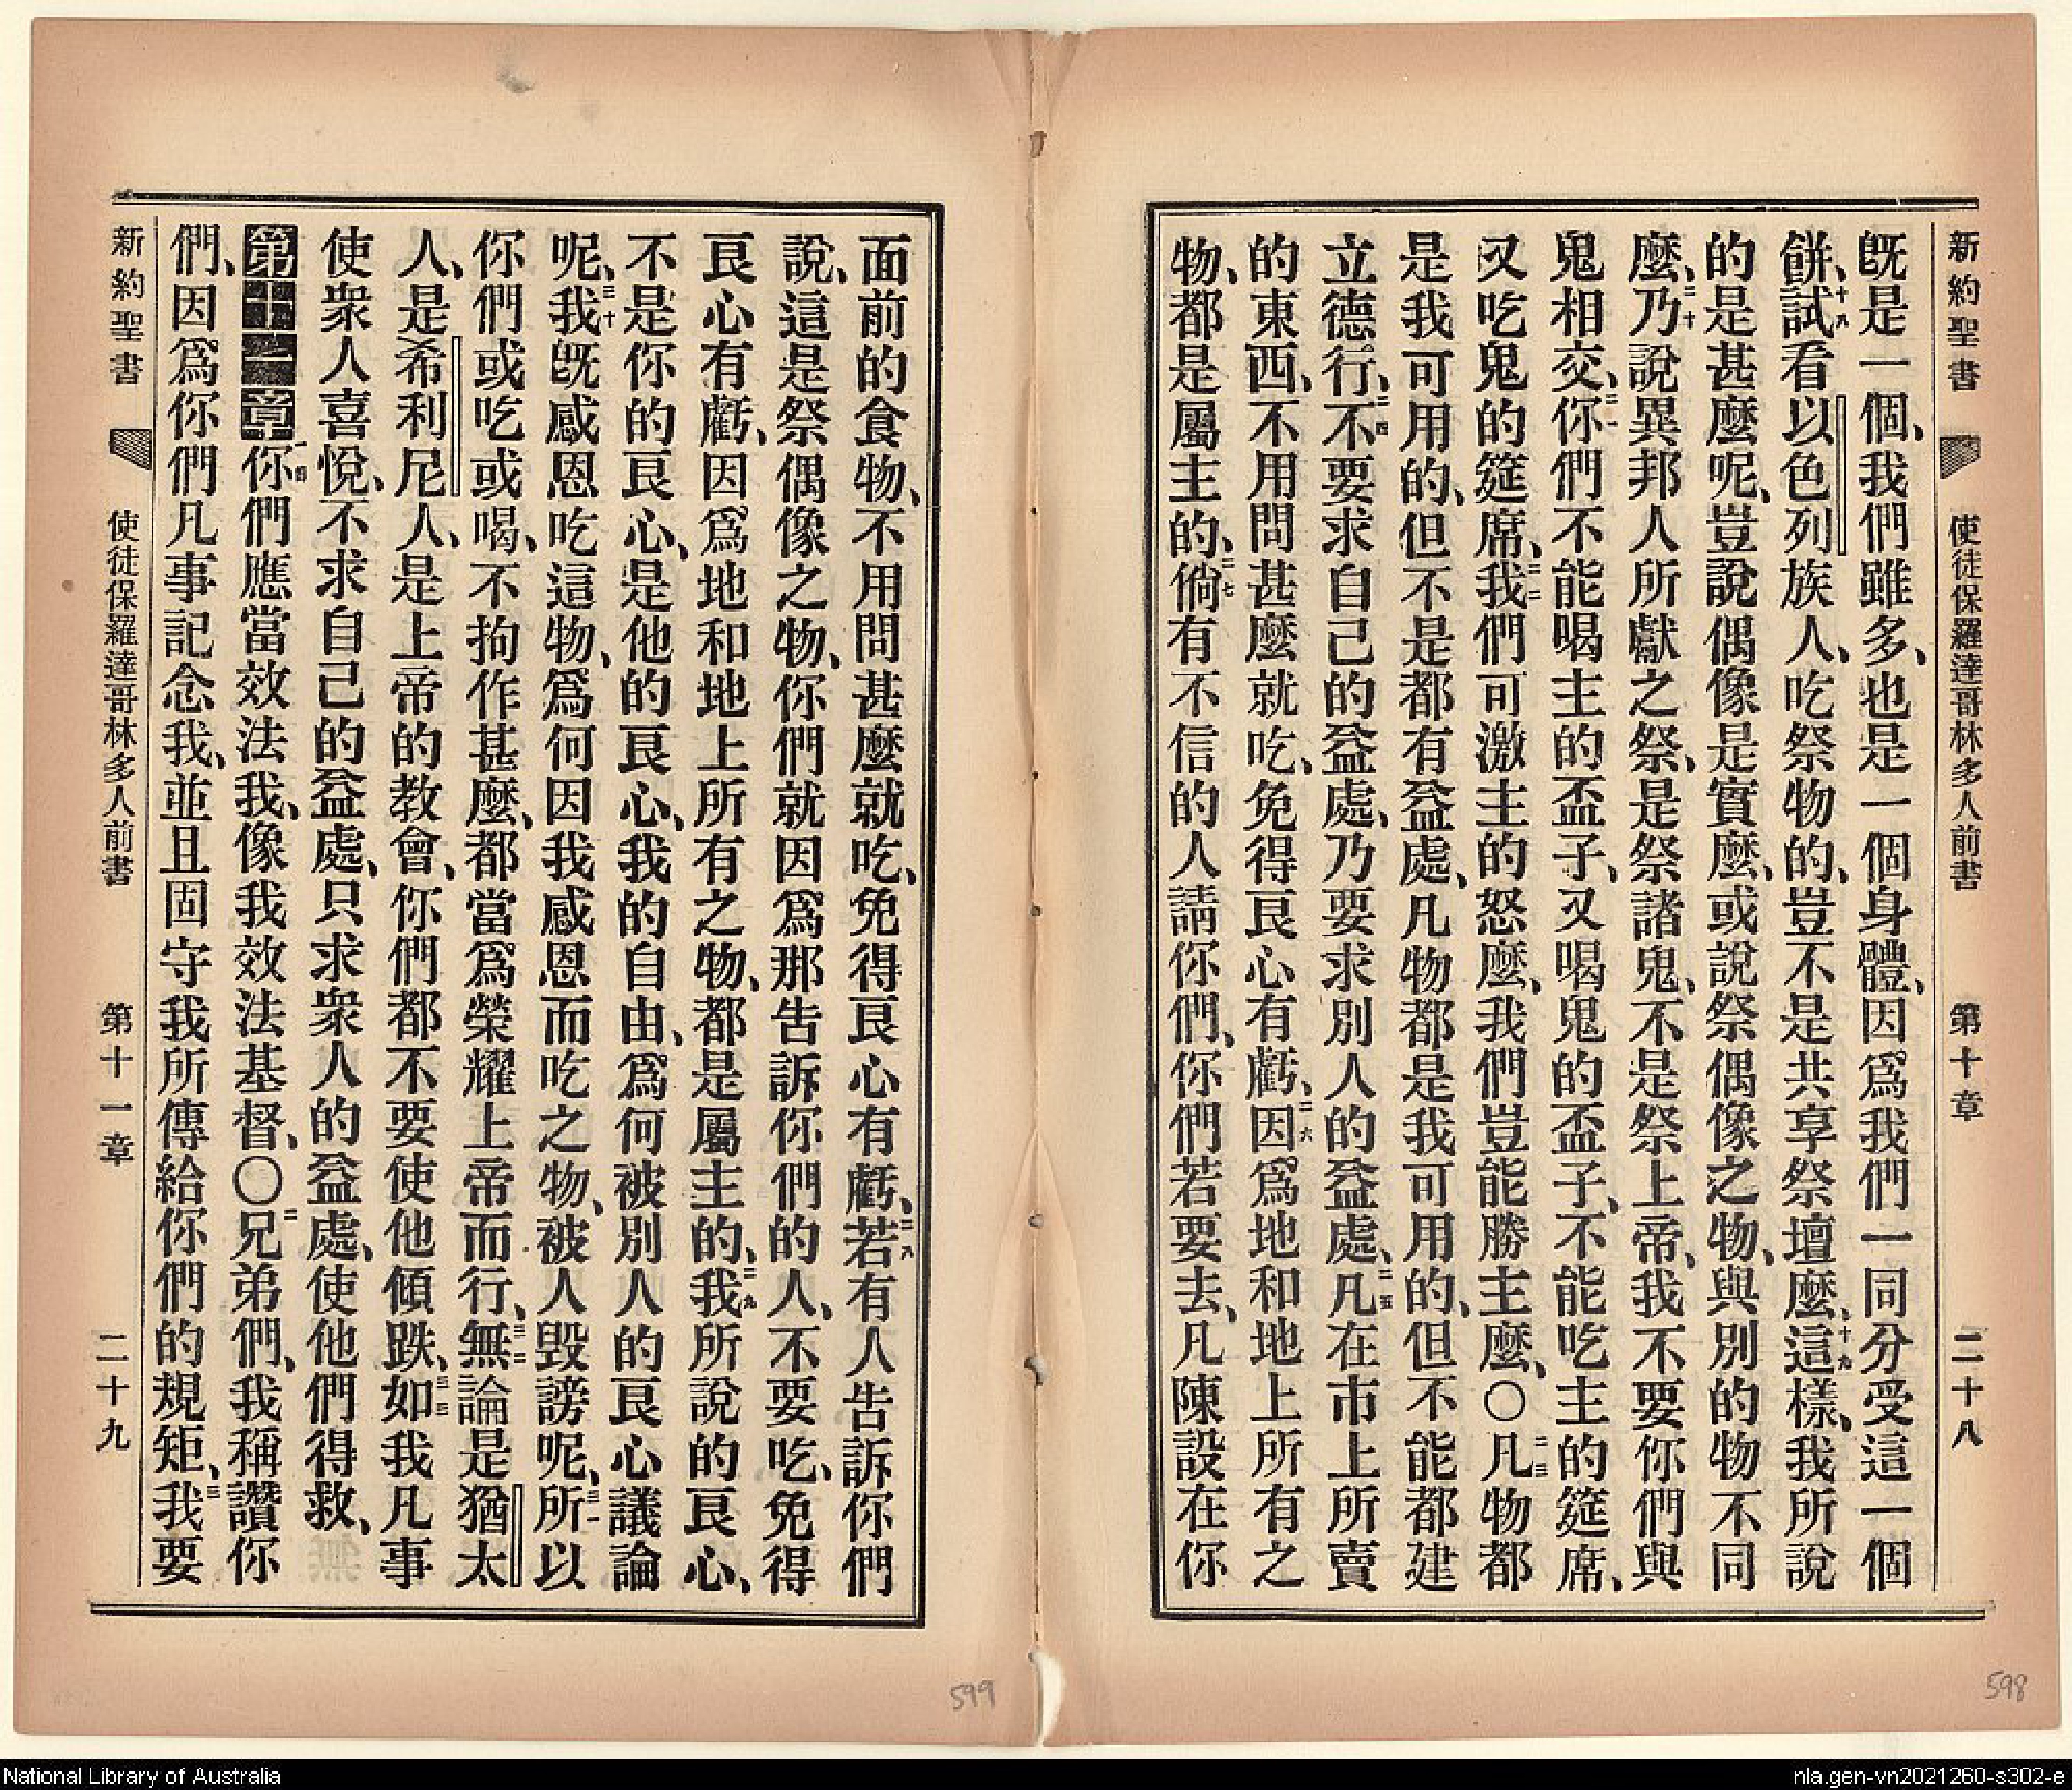 新約聖書 使徒保羅達哥林多人前書 第十章 二十八
旣是一個、我們雖多、也是一個身體、因爲我們一同分受這一個
餅、十八試看以色列族人、吃祭物的、豈不是共享祭壇麽、十九這樣、我所說
的是甚麽呢、豈說偶像是實麽、或說祭偶像之物、與別的物不同
麽、二十乃說異邦人所獻之祭、是祭諸鬼、不是祭上帝、我不要你們與
鬼相交、二一你們不能喝主的盃子、又喝鬼的盃子、不能吃主的筵席、
又吃鬼的筵席、二二我們可激主的怒麽、我們豈能勝主麽、〇二三凡物都
是我可用的、但不是都有益處、凡物都是我可用的、但不能都建
立德行、二四不要求自己的益處、乃要求別人的益處、二五凡在市上所賣
的東西、不用問甚麽就吃、免得良心有虧、二六因爲地和地上所有之
物、都是屬主的、二七倘有不信的人請你們、你們若要去、凡陳設在你
面前的食物、不用問甚麽就吃、免得良心有虧、二八若有人告訴你們
說、這是祭偶像之物、你們就因爲那告訴你們的人、不要吃、免得
良心有虧、因爲地和地上所有之物、都是屬主的、二九我所說的良心、
不是你的良心、是他的良心、我的自由、爲何被別人的良心議論
呢、三十我旣感恩吃這物、爲何因我感恩而吃之物、被人毀謗呢、三一所以
你們或吃或喝、不拘作甚麽、都當爲榮耀上帝而行、三二無論是猶太
人、是希利尼人、是上帝的教會、你們都不要使他傾跌、三三如我凡事
使衆人喜悅、不求自己的益處、只求衆人的益處、使他們得救、
第十一章一節你們應當效法我、像我效法基督、〇二兄弟們、我稱讚你
們、因爲你們凡事記念我、並且固守我所傳給你們的規矩、三我要
新約聖書 使徒保羅達哥林多人前書 第十一章 二十九
599
598
National Library of Australia
nla.gen-vn2021260-s302-e